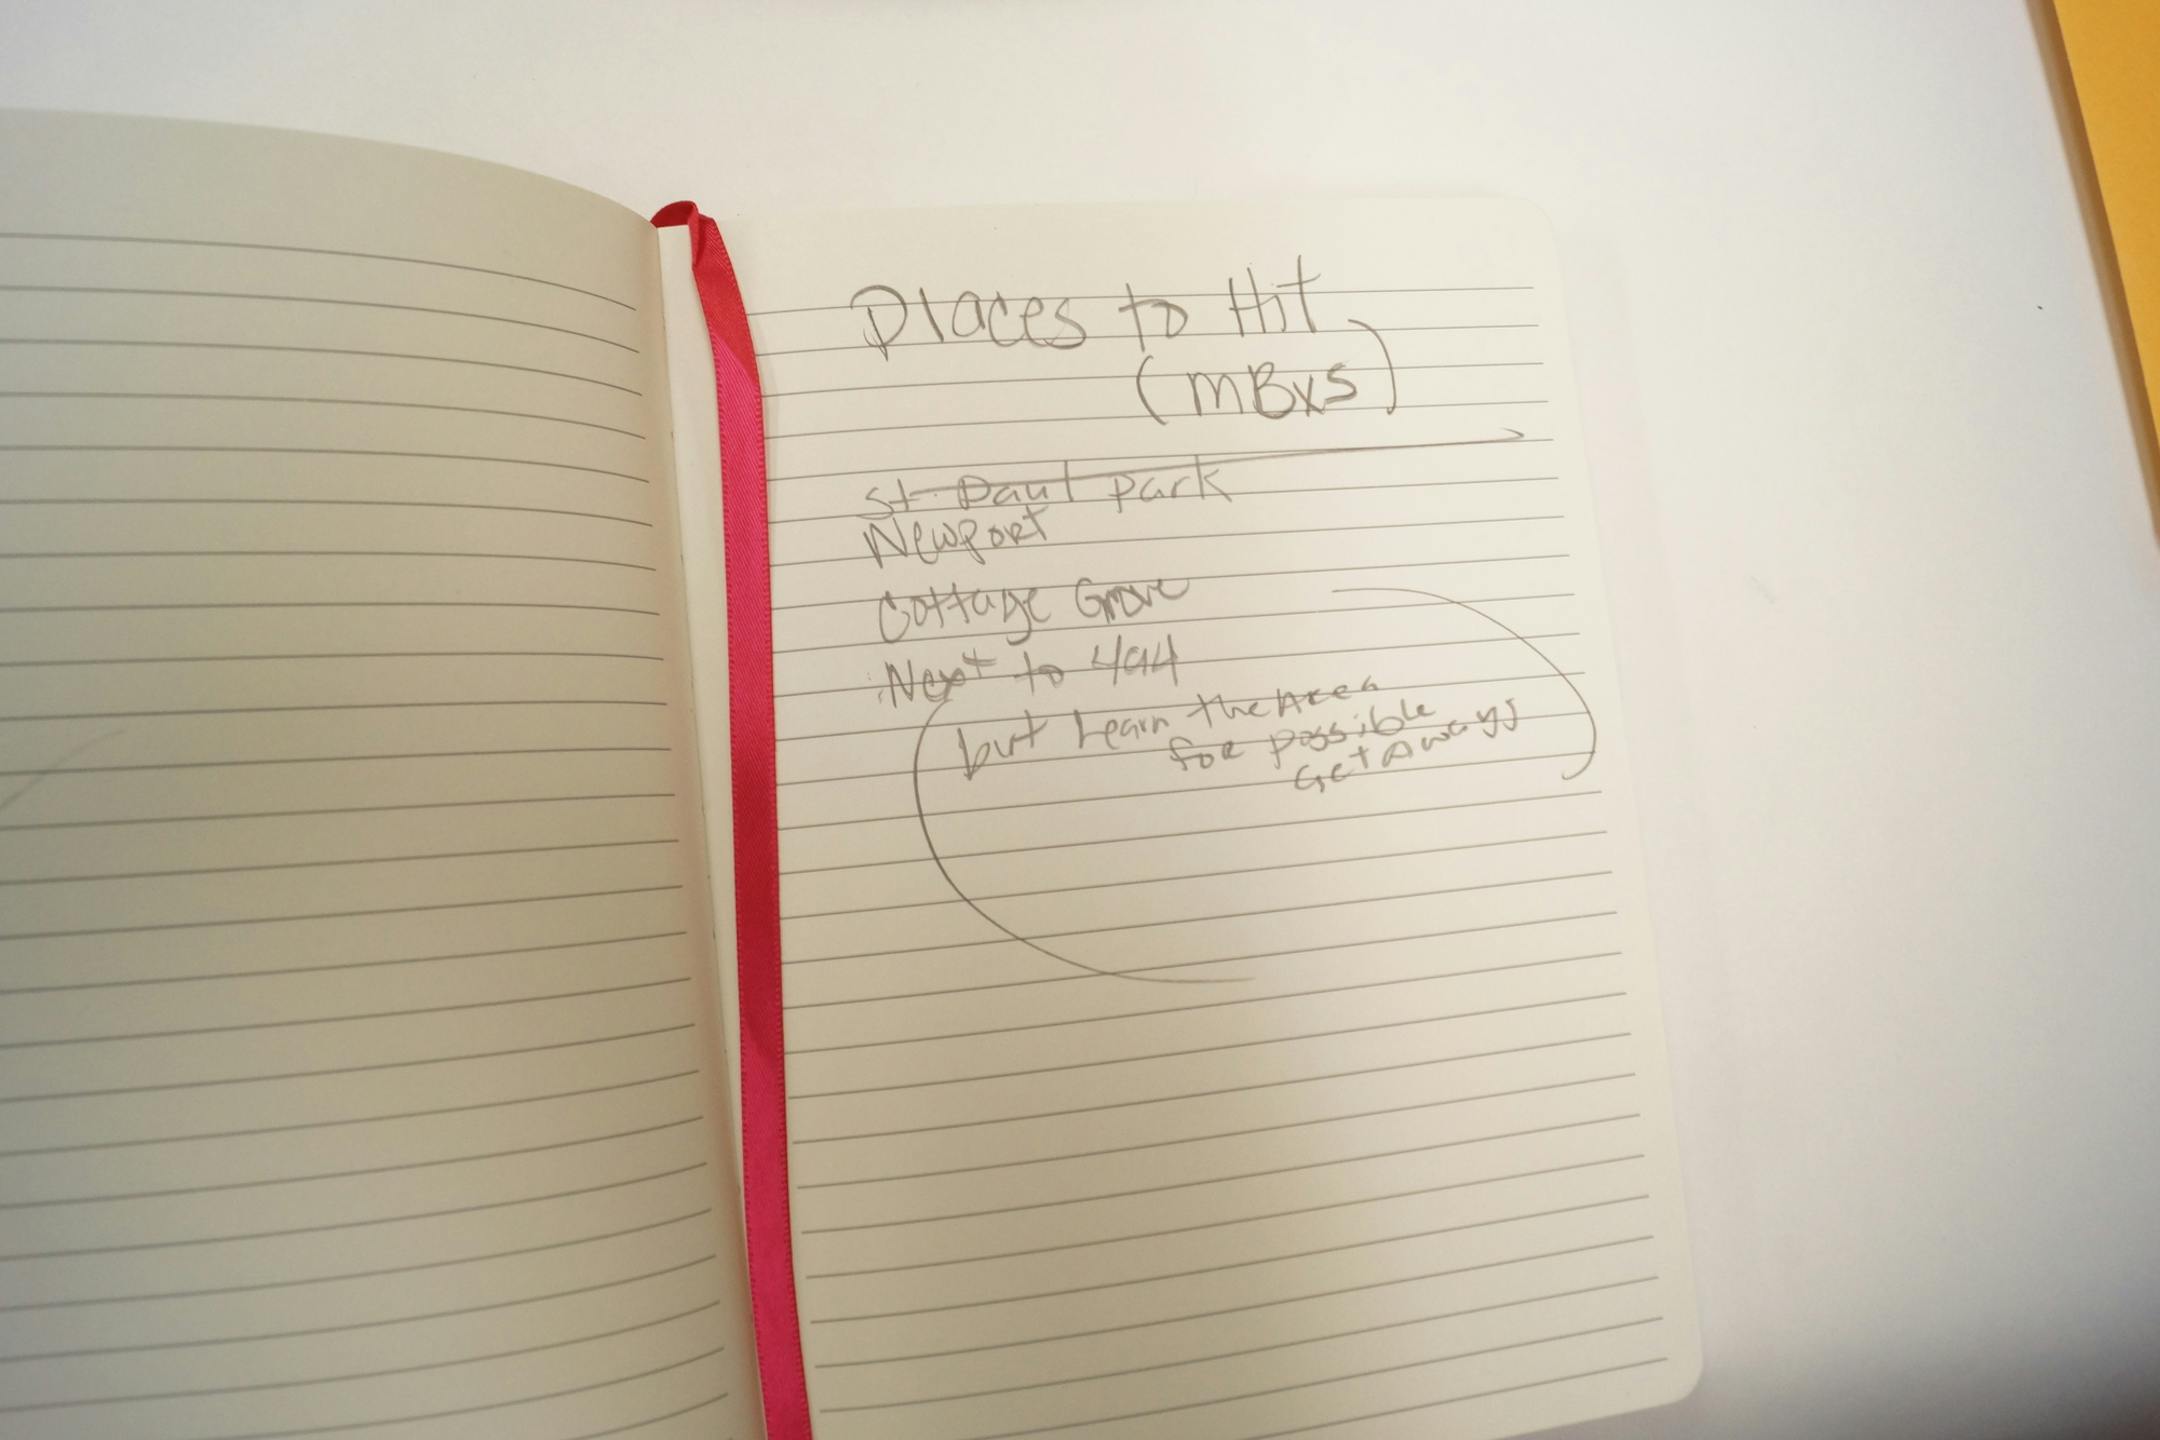 Places to Hit
(MBxs)
St. Paul Park
Newport
Cottage Grove
Next to 494
but Learn the Area
for possible
Get Aways